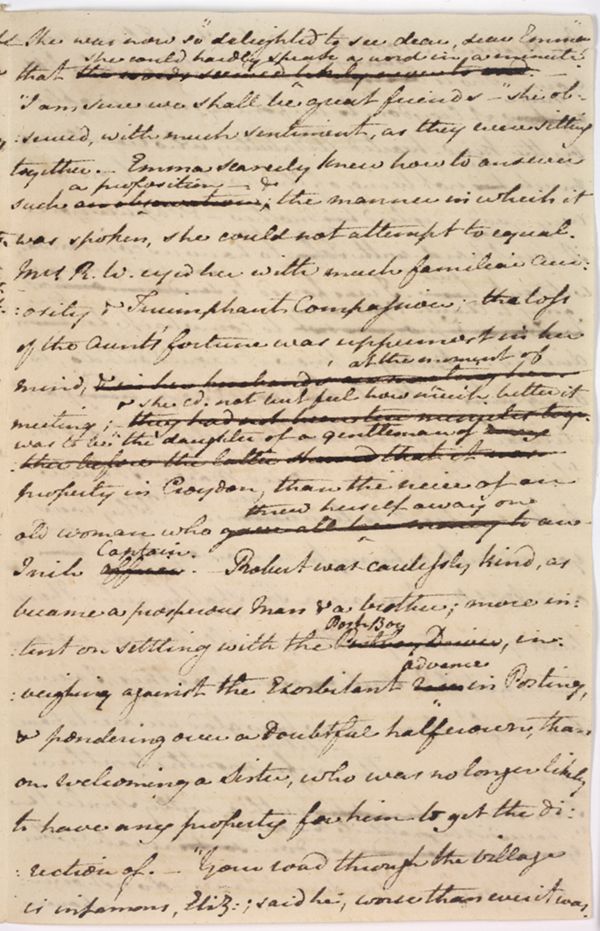 She was now so "delighted to see dear, dear Emma"
she could hardly speak a word in a minute.
that the words seemed likely never to end. —
"I am sure we shall be great friends" — she ob-
:served, with much sentiment, as they were sitting
together. — Emma scarcely knew how to answer
a proposition — &
such an observation; the manner in which it
was spoken, she could not attempt to equal.
Mrs R. W. eyed her with much familiar curi:
:osity & Triumphant Compassion; — the loss
of the Aunt's fortune was uppermost in her
at the moment of
mind,
& she cd. not but feel how much better it
meeting; — they had not been
was to be the daughter of a gentleman of
before the latter that it was
property in Croydon, than the neice of an
threw herself away on
old woman who gave all her money to an
Captain.
Irish officer. — Robert was carelessly kind, as
became a prosperous Man & a brother; more in-
Post-Boy
:tent on settling with the Driver, in:
advance
:veighing against the Exorbitant rise in Posting,
& pondering over a doubtful halfcrown, than
on welcoming a Sister, who was no longer likely
to have any property for him to get the di:
:rection of. — "Your road through the village
is infamous, Eliz:; said he; worse than ever it was.